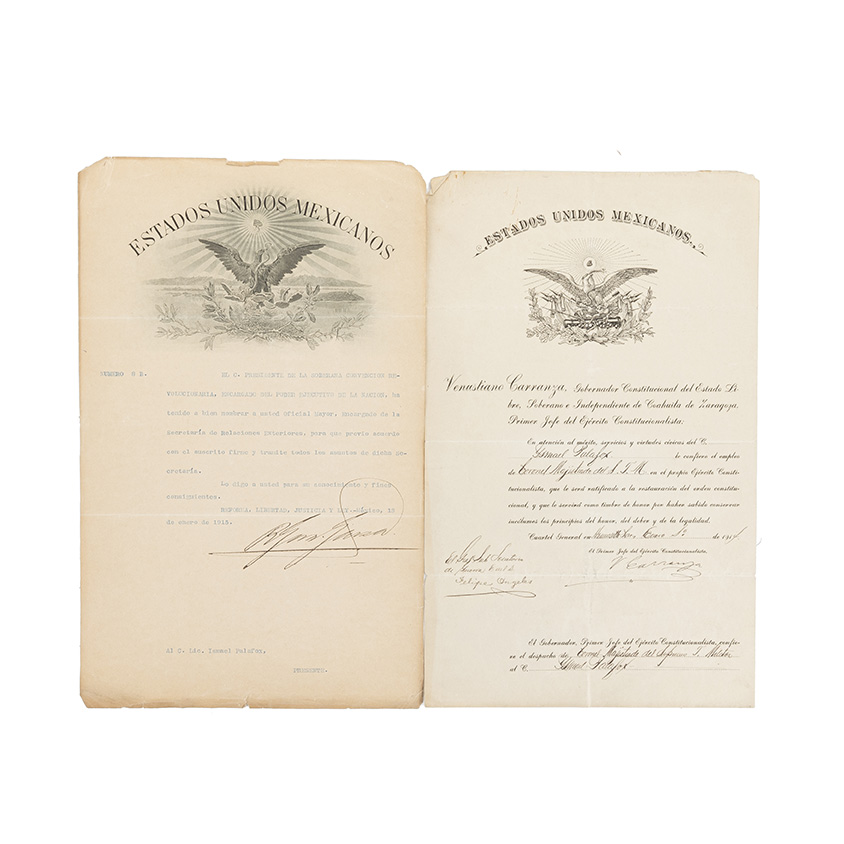 ESTADOS UNIDOS MEXICANOS
NUMERO 8 B. EL C. PRESIDENTE DE LA SOBERANA CONVENCION RE-
VOLUCIONARIA, ENCARGADO DEL PODER EJECUTIVO DE LA NACION, ha
tenido a bien nombrar a usted oficial mayor, Encargado de la
Secretaría de Relaciones Exteriores, para que previo acuerdo
con el suscrito firme y tramite todos los asuntos de dicha se-
cretaría.
Lo digo a usted para su conocimiento y fines
consiguientes.
REFORMA, LIBERTAD, JUSTICIA Y LEY. México, 18
de enero de 1915.
Al C. Lic. Ismael Palafox,
PRESENTE.
ESTADOS UNIDOS MEXICANOS.
Venustiano Carranza, Gobernador Constitucional del Estado Li-
bre, Soberano e Independiente de Coahuila de Zaragoza,
Primer Jefe del Ejército Constitucionalista:
En atención al mérito, servicios y virtudes cívicas del C.
Ismael Palafox le confiero el empleo
de Coronel Magistrado del S. T. M. en el propio Ejército Consti-
tucionalista, que le será ratificado a la restauración del orden constitu-
cional, y que le servirá como timbre de honor por haber sabido conservar
incólumes los principios del honor, del deber y de la legalidad.
Cuartel General en Hermosillo, Enero 1º de 1914
El Primer Jefe del Ejército Constitucionalista.
V Carranza
de Guerra
Felipe Angeles
El Gobernador, Primer Jefe del Ejército Constitucionalista, confie-
re el despacho de Coronel Magistrado del Supremo T. Militar
al C. Ismael Palafox